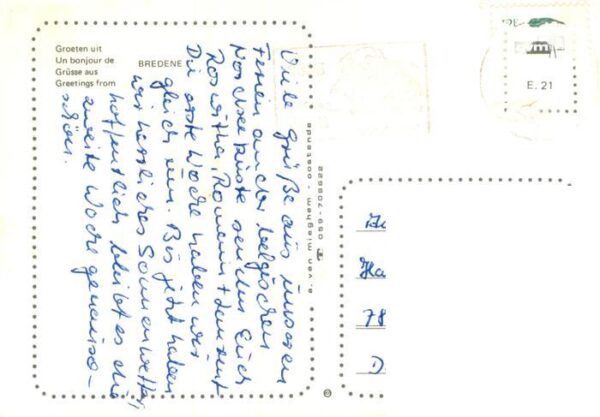 Groeten uit
Un bonjour de
Grüsse aus
Greetings from
BREDENE
Viele Grüße aus unseren
Ferien an der belgischen
Nordseeküste senden Euch
Roswitha, Romain +
Die erste Woche haben wir
gleich um. Bis jetzt haben
wir herrliches Sonnenwetter,
hoffentlich bleibt es die
zweite Woche genauso
schön.
e. van mieghem - oostende
059-705622
E. 21
Ha
78
D